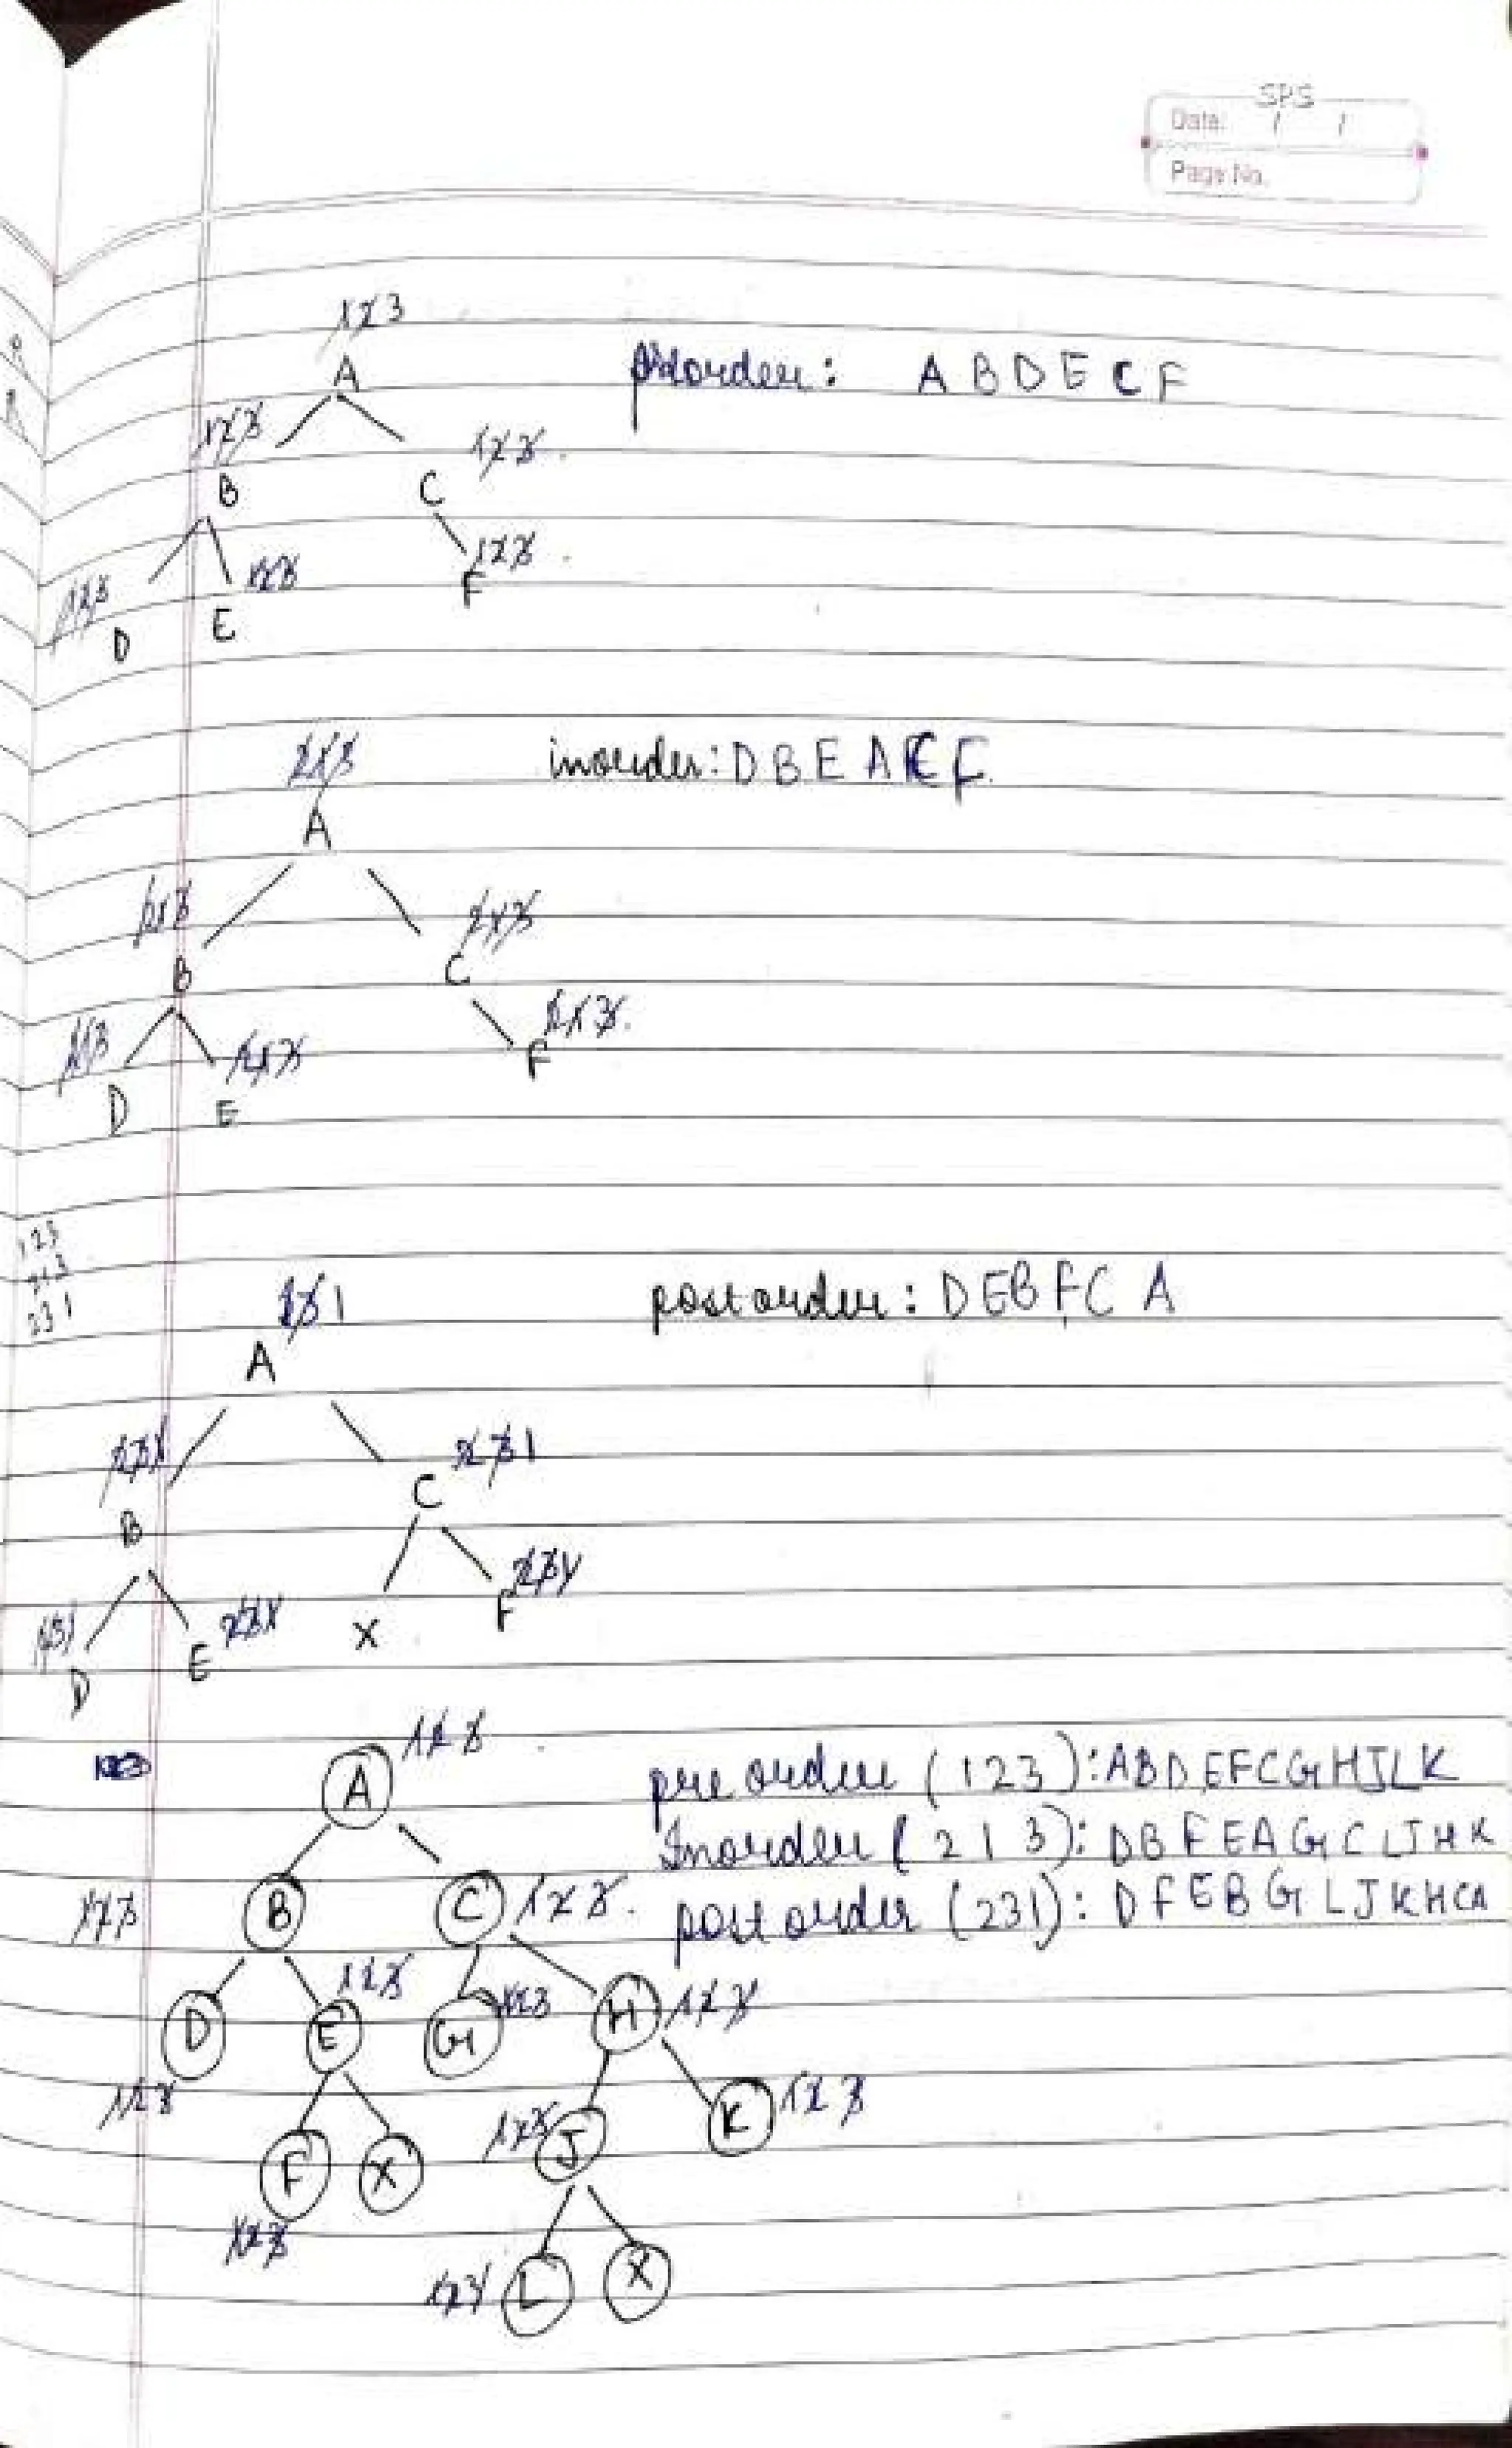 SPS
Date: / /
Page No.
1 2 3
A
preorder: A B D E C F
1 2 3
1 2 3
B
C
1 2 3
1 2 3
1 2 3
F
D
E
2 1 3
inorder: D B E A C F
A
2 1 3
B
C
2 1 3
F
2 1 3
D
E
1 2 3
2 1 3
2 3 1
2 3 1
postorder: D E B F C A
A
2 3 1
2 3 1
C
B
2 3 1
F
2 3 1
X
E
D
1 2 3
A
pre order (1 2 3): A B D E F C G H J L K
Inorder (2 1 3): D B F E A G C L J H K
post order (231): D F E B G L J K H C A
1 2 3
B
C
1 2 3
1 2 3
D
E
G
1 2 3
H
1 2 3
1 2 3
1 2 3
J
K
1 2 3
F
X
1 2 3
1 2 3
L
X